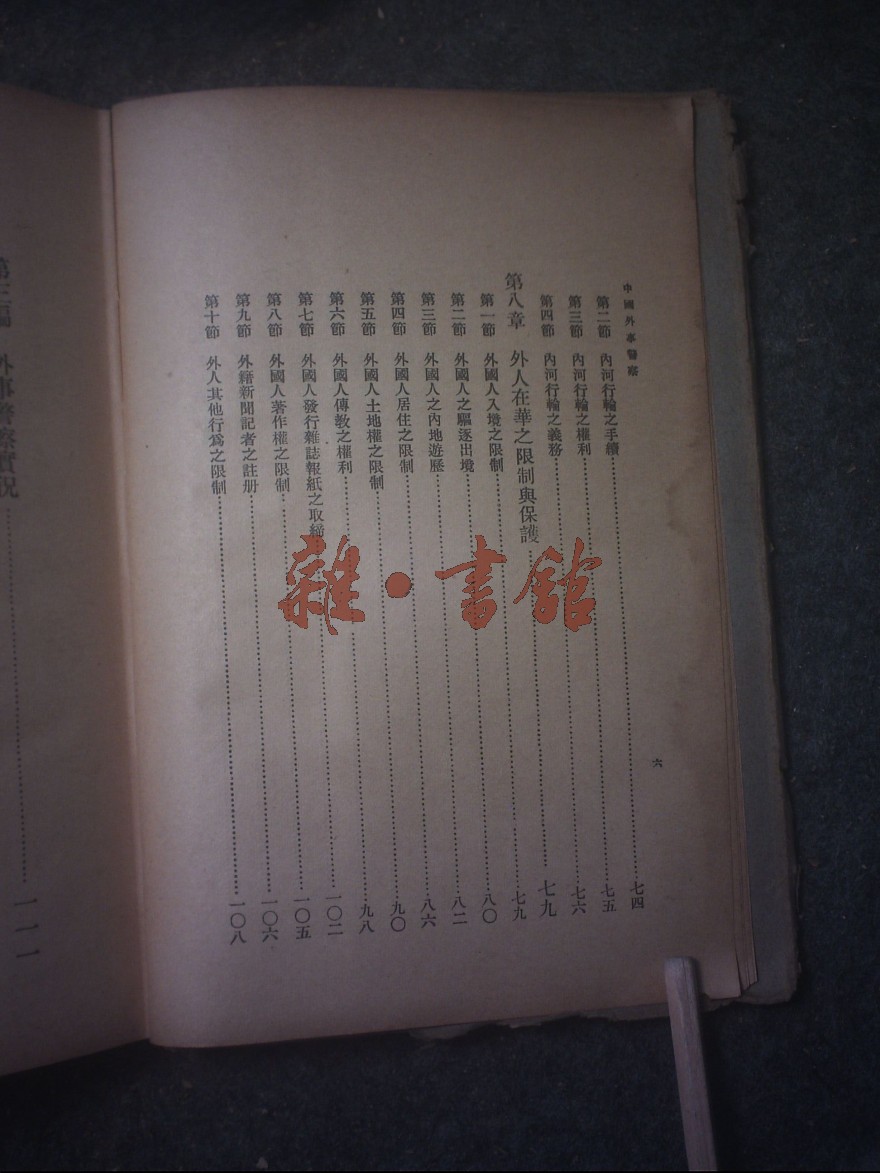 中國外事警察 六
第二節 內河行輪之手續……七四
第三節 內河行輪之權利……七五
第四節 內河行輪之義務……七六
第八章 外人在華之限制與保護……七九
第一節 外國人入境之限制……七九
第二節 外國人之驅逐出境……八〇
第三節 外國人之內地遊歷……八二
第四節 外國人居住之限制……八六
第五節 外國人土地權之限制……九〇
第六節 外國人傳教之權利……九八
第七節 外國人發行雜誌報紙之取締……一〇二
第八節 外國人著作權之限制……一〇五
第九節 外籍新聞記者之註册……一〇六
第十節 外人其他行爲之限制……一〇八
第三編 外事警察實況……一一一
雜·書館